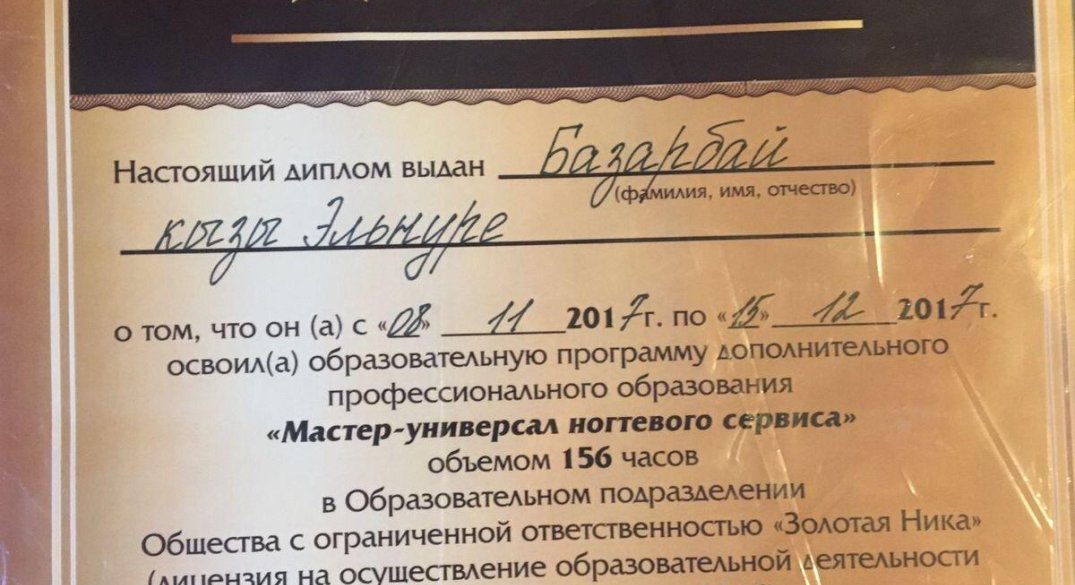 Настоящий диплом выдан Базарбай
(фамилия, имя, отчество)
кызы Эльнуре
о том, что он (а) с «08» 11 2017г. по «15» 12 2017г.
освоил(а) образовательную программу дополнительного
профессионального образования
«Мастер-универсал ногтевого сервиса»
объемом 156 часов
в Образовательном подразделении
Общества с ограниченной ответственностью «Золотая Ника»
(лицензия на осуществление образовательной деятельности